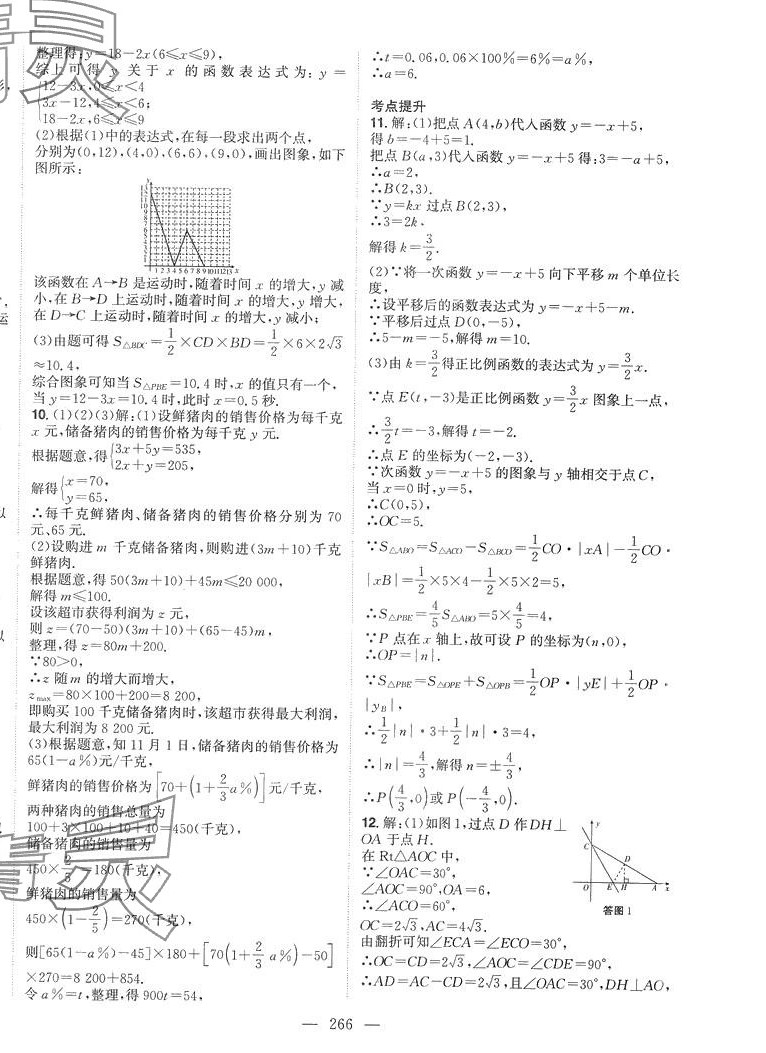 整理得:y=18-2x(6≤x≤9),
综上可得 y 关于 x 的函数表达式为: y=
12-3x,0≤x<4
3x-12,4≤x<6;
18-2x,6≤x≤9
(2)根据(1)中的表达式,在每一段求出两个点,
分别为(0,12),(4,0),(6,6),(9,0),画出图象,如下
图所示:
该函数在 A→B 是运动时,随着时间 x 的增大,y 减
小,在 B→D 上运动时,随着时间 x 的增大,y 增大,
在 D→C 上运动时,随着时间 x 的增大,y 减小;
(3)由题可得 S△BDC=1/2×CD×BD=1/2×6×2√3
≈10.4,
综合图象可知当 S△PBE=10.4 时,x 的值只有一个,
当 y=12-3x=10.4 时,此时 x=0.5 秒.
10. (1)(2)(3)解:(1)设鲜猪肉的销售价格为每千克
x 元,储备猪肉的销售价格为每千克 y 元.
根据题意,得{3x+5y=535,
2x+y=205,
解得{x=70,
y=65,
∴每千克鲜猪肉、储备猪肉的销售价格分别为 70
元、65 元.
(2)设购进 m 千克储备猪肉,则购进(3m+10)千克
鲜猪肉.
根据题意,得 50(3m+10)+45m≤20 000,
解得 m≤100.
设该超市获得利润为 z 元,
则 z=(70-50)(3m+10)+(65-45)m,
整理,得 z=80m+200.
∵80>0,
∴z 随 m 的增大而增大,
zmax=80×100+200=8 200,
即购买 100 千克储备猪肉时,该超市获得最大利润,
最大利润为 8 200 元.
(3)根据题意,知 11 月 1 日,储备猪肉的销售价格为
65(1-a%)元/千克,
鲜猪肉的销售价格为[70+(1+2/3a%)]元/千克,
两种猪肉的销售总量为
100+3×100+10+40=450(千克),
储备猪肉的销售量为
450×2/5=180(千克),
鲜猪肉的销售量为
450×(1-2/5)=270(千克),
则[65(1-a%)-45]×180+[70(1+2/3a%)-50]
×270=8 200+854.
令 a%=t,整理,得 900t=54,
∴t=0.06,0.06×100%=6%=a%,
∴a=6.
考点提升
11. 解:(1)把点 A(4,b)代入函数 y=-x+5,
得 b=-4+5=1.
把点 B(a,3)代入函数 y=-x+5 得:3=-a+5,
∴a=2,
∴B(2,3).
∵y=kx 过点 B(2,3),
∴3=2k.
解得 k=3/2.
(2)∵将一次函数 y=-x+5 向下平移 m 个单位长
度,
∴设平移后的函数表达式为 y=-x+5-m.
∵平移后过点 D(0,-5),
∴5-m=-5,解得 m=10.
(3)由 k=3/2得正比例函数的表达式为 y=3/2x.
∵点 E(t,-3)是正比例函数 y=3/2x 图象上一点,
∴3/2t=-3,解得 t=-2.
∴点 E 的坐标为(-2,-3).
∵次函数 y=-x+5 的图象与 y 轴相交于点 C,
当 x=0 时,y=5,
∴C(0,5),
∴OC=5.
∵S△ABO=S△ACO-S△BCO=1/2CO·|xA|-1/2CO·
|xB|=1/2×5×4-1/2×5×2=5,
∴S△PBE=4/5S△ABO=5×4/5=4,
∵P 点在 x 轴上,故可设 P 的坐标为(n,0),
∴OP=|n|.
∵S△PBE=S△OPE+S△OPB=1/2OP·|yE|+1/2OP·
|yB|,
∴1/2|n|·3+1/2|n|·3=4,
∴|n|=4/3,解得 n=±4/3,
∴P(4/3,0)或P(-4/3,0).
12. 解:(1)如图 1,过点 D 作 DH⊥
OA 于点 H.
在 Rt△AOC 中,
∵∠OAC=30°,
∠AOC=90°,OA=6,
∴∠ACO=60°,
OC=2√3,AC=4√3.
由翻折可知∠ECA=∠ECO=30°,
∴OC=CD=2√3,∠AOC=∠CDE=90°,
∴AD=AC-CD=2√3,且∠OAC=30°,DH⊥AO,
y
C
D
O E H A x
答图 1
— 266 —